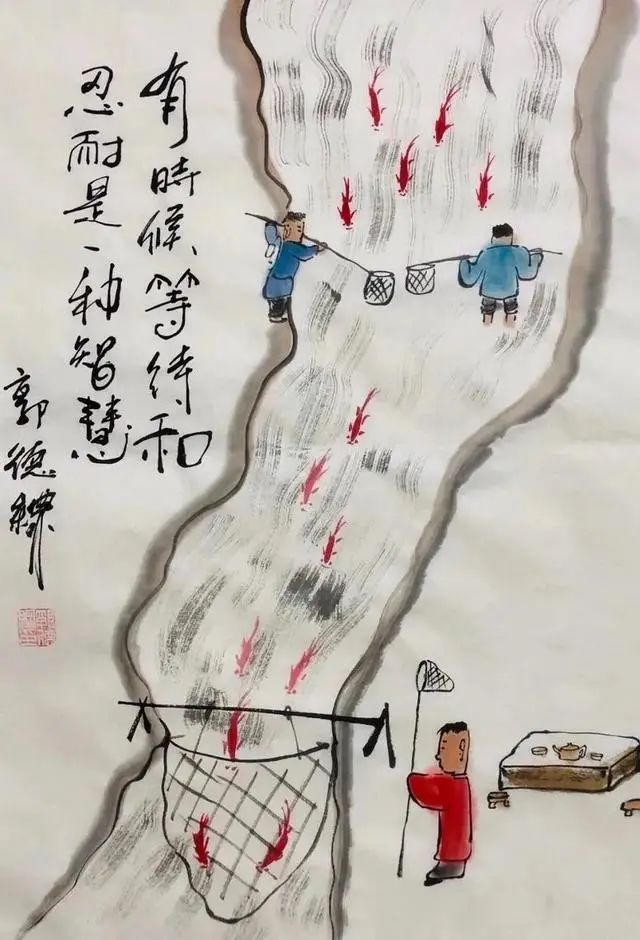 有時候等待和
忍耐是一种智慧
郭德綱